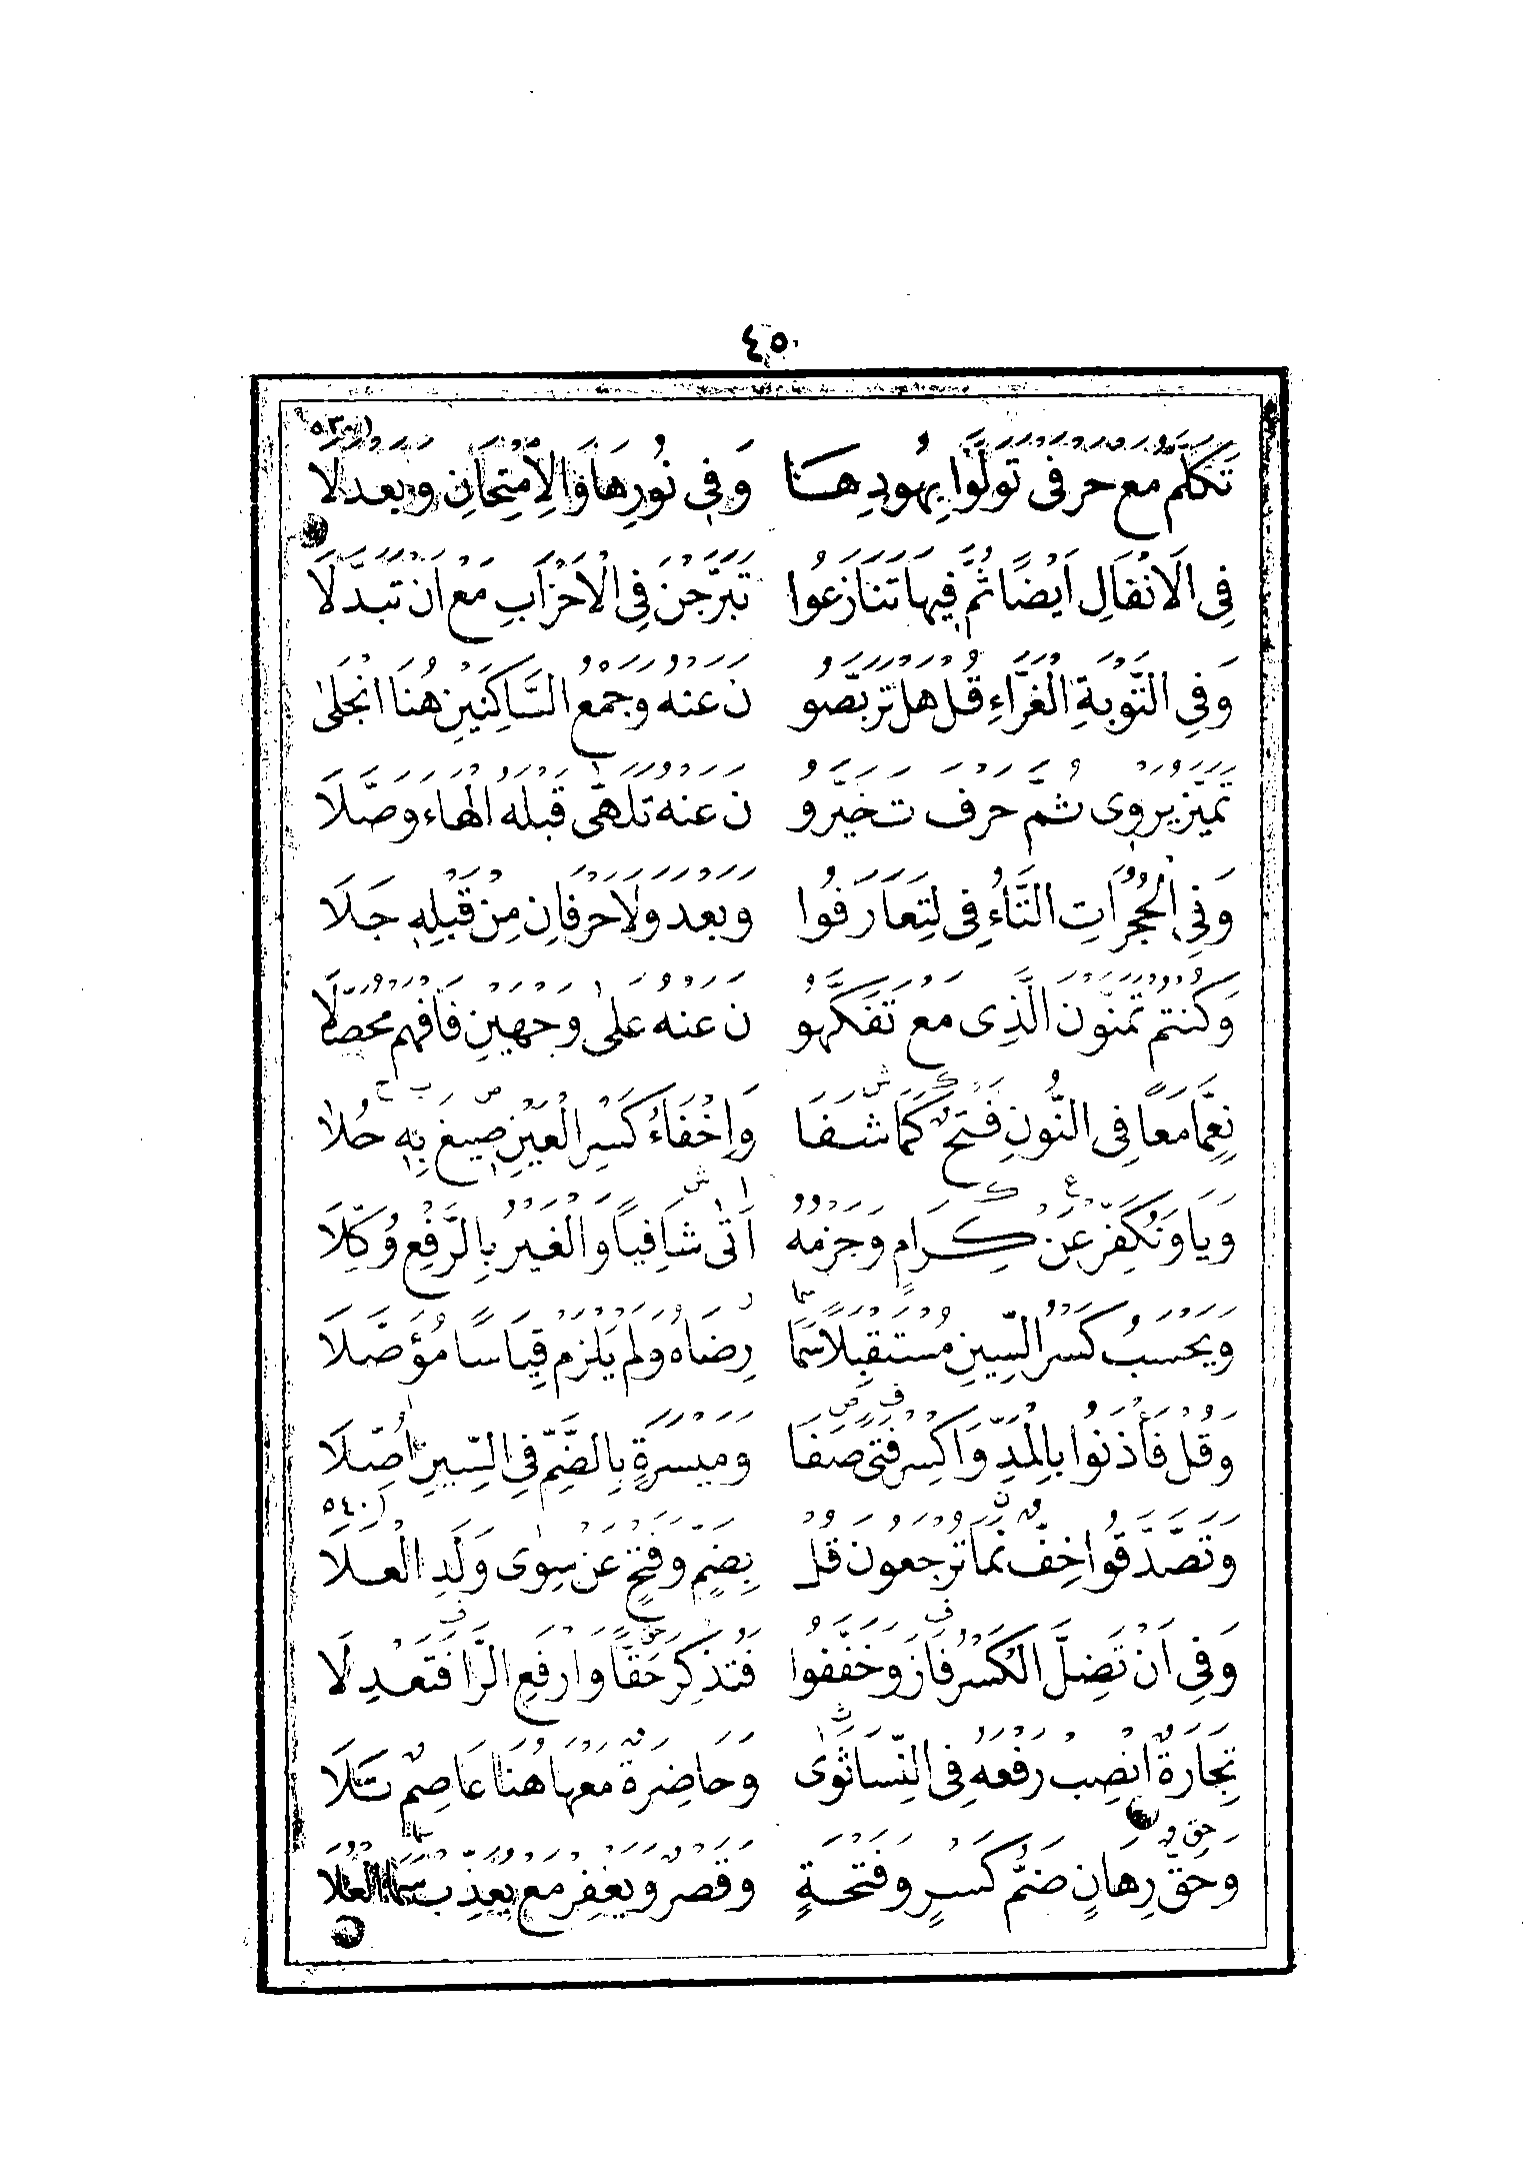 ٤٥
تَكَلَّمُ مَعْ حَرْفَىْ تَوَلَّوْا بِهُودِهَا وَفِى نُورِهَا وَالِامْتِحَانِ وَبَعْدَ لَا
(٥٣٠
فِى الَانْفَالِ اَيْضًا ثُمَّ فِيهَا تَنَازَعُوا تَبَرَّجْنَ فِى الْاَحْزَابِ مَعْ اَنْ تَبَدَّلَا
وَفِى التَّوْبَةِ الْغَرَّاءِ قُلْ هَلْ تَرَبَّصُو نَ عَنْهُ وَجَمْعُ السَّاكِنَيْنِ هُنَا انْجَلَى
تَمَيَّزُ يَرْوِى ثُمَّ حَرْفَ تَخَيَّرُو نَ عَنْهُ تَلَهَّى قَبْلَهُ الْهَاءَ وَصَّلَا
وَفِى الْحُجُرَاتِ التَّاءُ فِى لِتَعَارَفُوا وَبَعْدَ وَلَا حَرْفَانِ مِنْ قَبْلِهِ جَلَا
وَكُنْتُمْ تَمَنَّوْنَ الَّذِى مَعْ تَفَكَّهُو نَ عَنْهُ عَلَى وَجْهَيْنِ فَافْهَمْ مُحَصِّلَا
نِعِمَّا مَعًا فِى النُّونِ فَتْحٌ كَمَا شَفَا وَاِخْفَاءُ كَسْرِ الْعَيْنِ صِيغَ بِهِ حُلَا
وَيَا وَنُكَفِّرْ عَنْ كِرَامٍ وَجَزْمُهُ اَتَى شَافِيًا وَالْغَيْرُ بِالرَّفْعِ وُكِّلَا
وَيَحْسَبُ كَسْرُ السِّينِ مُسْتَقْبِلًا سَمَا رِضَاهُ وَلَمْ يَلْزَمْ قِيَاسًا مُؤَصَّلَا
وَقُلْ فَأْذَنُوا بِالْمَدِّ وَاكْسِرْ فَتًى صَفَا وَمَيْسَرَةٍ بِالضَّمِّ فِى السِّينِ اُصِّلَا
(٥٤٠
وَتَصَّدَّقُوا خِفٌّ نَمَا تُرْجَعُونَ قُلْ بِضَمٍّ وَفَتْحٍ عَنْ سِوَى وَلَدِ الْعَلَا
وَفِى اَنْ تَضِلَّ الْكَسْرُ فَازَ وَخَفَّفُوا فَتُذْكِرَ حَقًّا وَارْفَعِ الرَّا فَتَعْدِلَا
تِجَارَةٌ انْصِبْ رَفْعَهُ فِى النِّسَا ثَوَى وَحَاضِرَةٌ مَعْهَا هُنَا عَاصِمٌ تَلَا
وَحَقُّ رِهَانٍ ضَمُّ كَسْرٍ وَفَتْحَةٍ وَقَصْرٌ وَيَغْفِرْ مَعْ يُعَذِّبْ سَمَا الْعُلَا